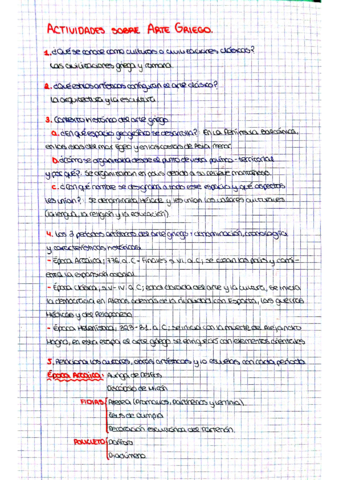 ACTIVIDADES SOBRE ARTE GRIEGO.
1. ¿Qué se conoce como culturas o civilizaciones clásicas?
Las civilizaciones griega y romana.
2. ¿Qué estilos artísticos configuran el arte clásico?
La arquitectura y la escultura.
3. Contexto histórico del arte griego
a. ¿En qué espacio geográfico se desarrolla? En la Península Balcánica,
en las islas del mar Egeo y en las costas de Asia menor.
b. ¿Cómo se organizaba desde el punto de vista político-territorial
y por qué? Se organizaban en polis debido a su relieve montañoso.
c. ¿Con qué nombre se designaba a todo este espacio y qué aspectos
les unían? Se denominaba Hélade y les unían los valores culturales
(la lengua, la religión y la educación)
4. Los 3 períodos artísticos del arte griego: denominación, cronología
y características históricas
- Época Arcaica: 776 a.C - finales s. VI. a.C; se crean las polis y comi-
enza la expansión colonial
- Época clásica, s.V-IV a.C; edad dorada del arte y la cultura, se inicia
la democracia en Atenas además de la rivalidad con Esparta, las guerras
Médicas y del Peloponeso
- Época Helenística: 323-31. a.C; se inicia con la muerte de Alejandro
Magno, en esta etapa el arte griego se enriquece con elementos orientales
5. Relaciona los autores, obras artísticas y/o escuelas con cada periodo
Época Arcaica: Auriga de Delfos
Discóbolo de Mirón
FIDIAS Atenea (Promacos, Parthenos y Lemnia).
Zeus de Olimpia
Decoración escultórica del Partenón.
POLICLETO Doríforo
Diadúmeno